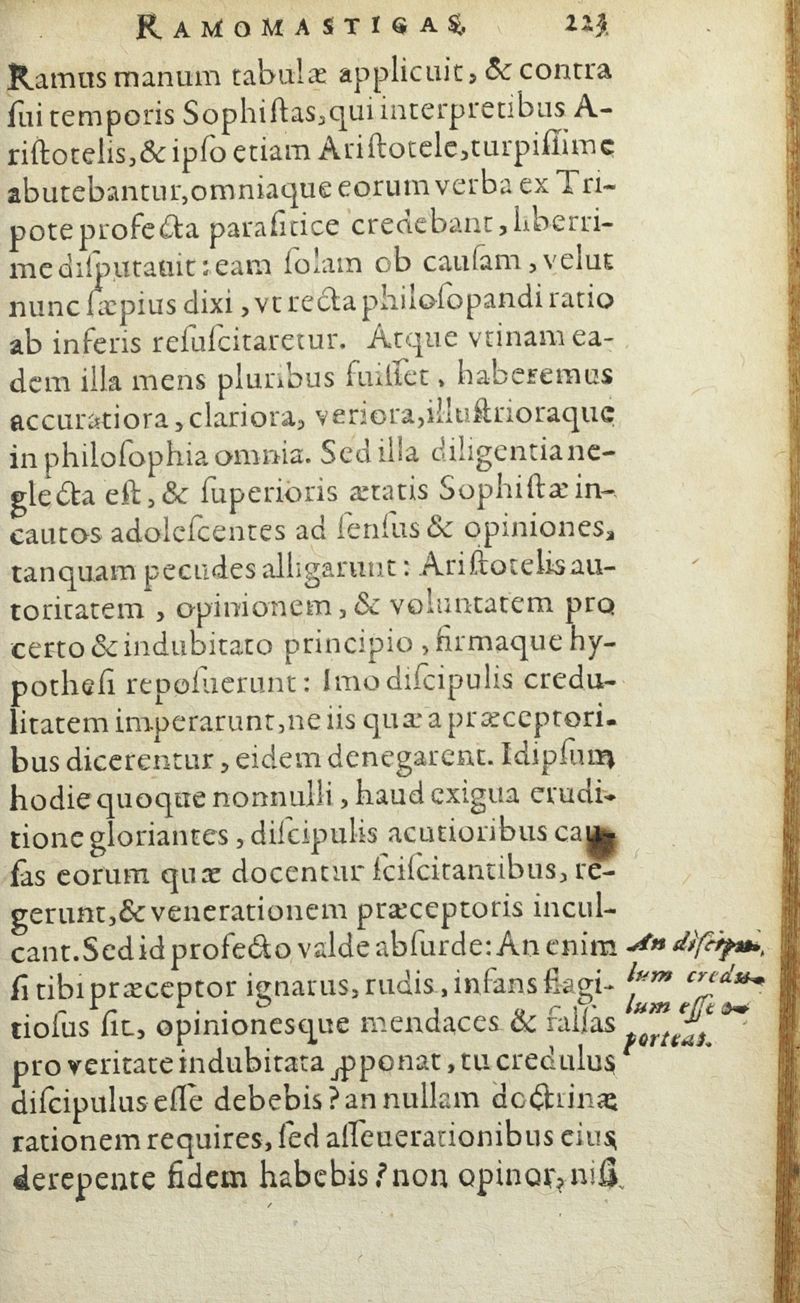 RAMOMASTIGAS, 223
Ramus manum tabulæ applicuit, & contra
ſui temporis Sophiſtas, qui interpretibus A-
riſtotelis, & ipſo etiam Ariſtotele, turpiſſime
abutebantur, omniaque eorum verba ex Tri-
pote profecta paraſitice credebant, liberri-
me diſputauit: eam ſolam ob cauſam, velut
nunc ſæpius dixi, vt recta philoſopandi ratio
ab inferis reſuſcitaretur. Atque vtinam ea-
dem illa mens pluribus fuiſſet, haberemus
accuratiora, clariora, veriora, illuſtrioraque
in philoſophia omnia. Sed illa diligentia ne-
glecta eſt, & ſuperioris ætatis Sophiſtæ in-
cautos adoleſcentes ad ſenſus & opiniones,
tanquam pecudes alligarunt: Ariſtotelis au-
toritatem, opinionem, & voluntatem pro
certo & indubitato principio, firmaque hy-
potheſi repoſuerunt: Imo diſcipulis credu-
litatem imperarunt, ne iis quæ a præceptori-
bus dicerentur, eidem denegarent. Idipſum
hodie quoque nonnulli, haud exigua erudi-
tione gloriantes, diſcipulis acutioribus cau-
ſas eorum quæ docentur ſciſcitantibus, re-
gerunt, & venerationem præceptoris incul-
cant. Sed id profecto valde abſurde: An enim
ſi tibi præceptor ignarus, rudis, infans flagi-
tioſus ſit, opinionesque mendaces & falſas
pro veritate indubitata ꝓponat, tu credulus
diſcipulus eſſe debebis? an nullam doctrinæ
rationem requires, ſed aſſeuerationibus eius
derepente fidem habebis? non opinor, niſi
An diſcipu-
lum credu-
lum eſſe o-
porteat.